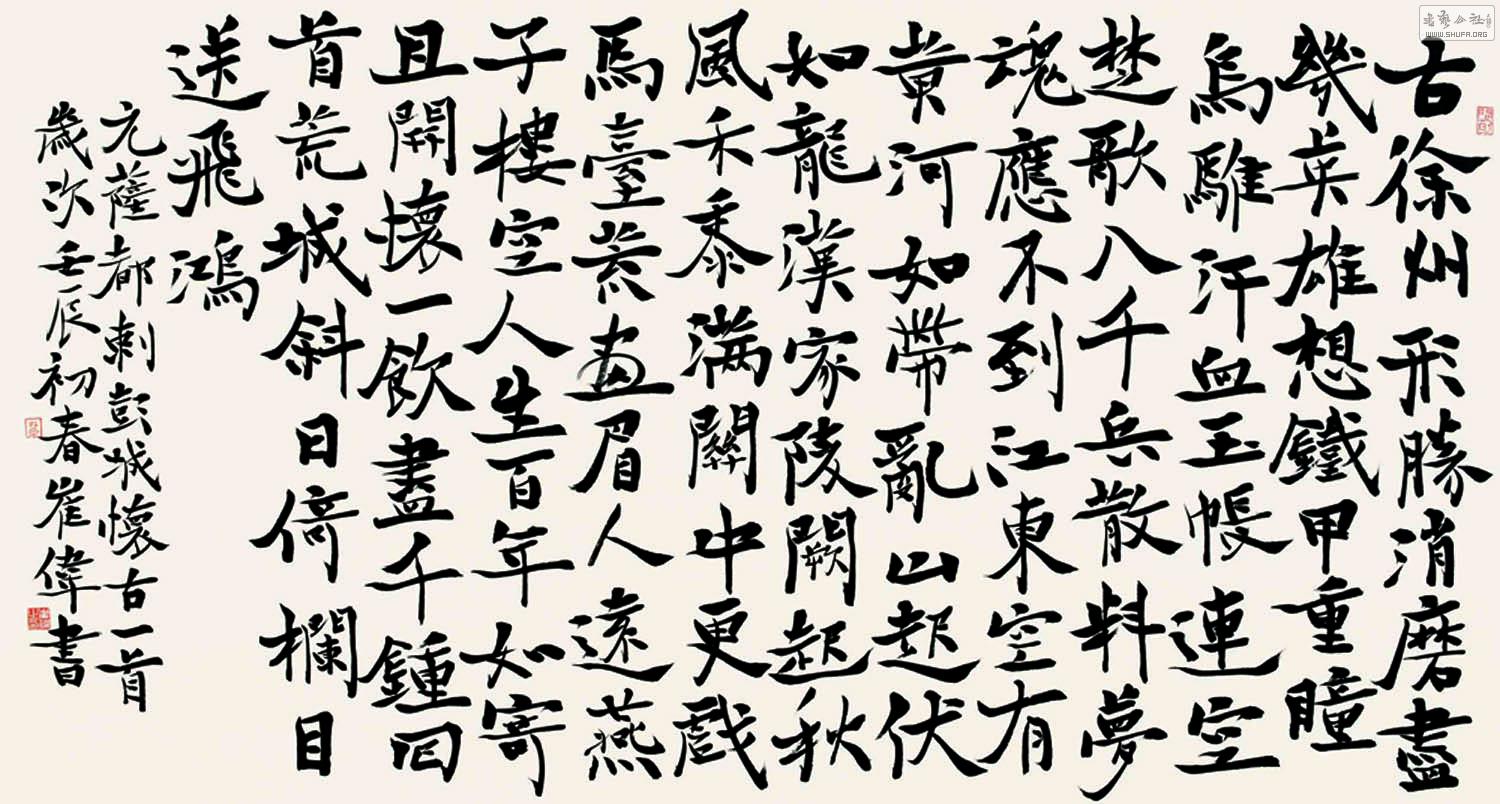 古徐州形勝消磨盡
幾英雄想鐵甲重瞳
烏騅汗血玉帳連空
楚歌八千兵散料夢
魂應不到江東空有
黄河如帶亂山起伏
如龍漢家陵闕起秋
風禾黍滿關中更戲
馬臺荒畫眉人遠燕
子樓空人生百年如寄
且開懷一飲盡千鍾回
首荒城斜日倚欄目
送飛鴻
元薩都剌彭城懷古一首
歲次壬辰初春崔偉書
WWW.SHUFA.ORG